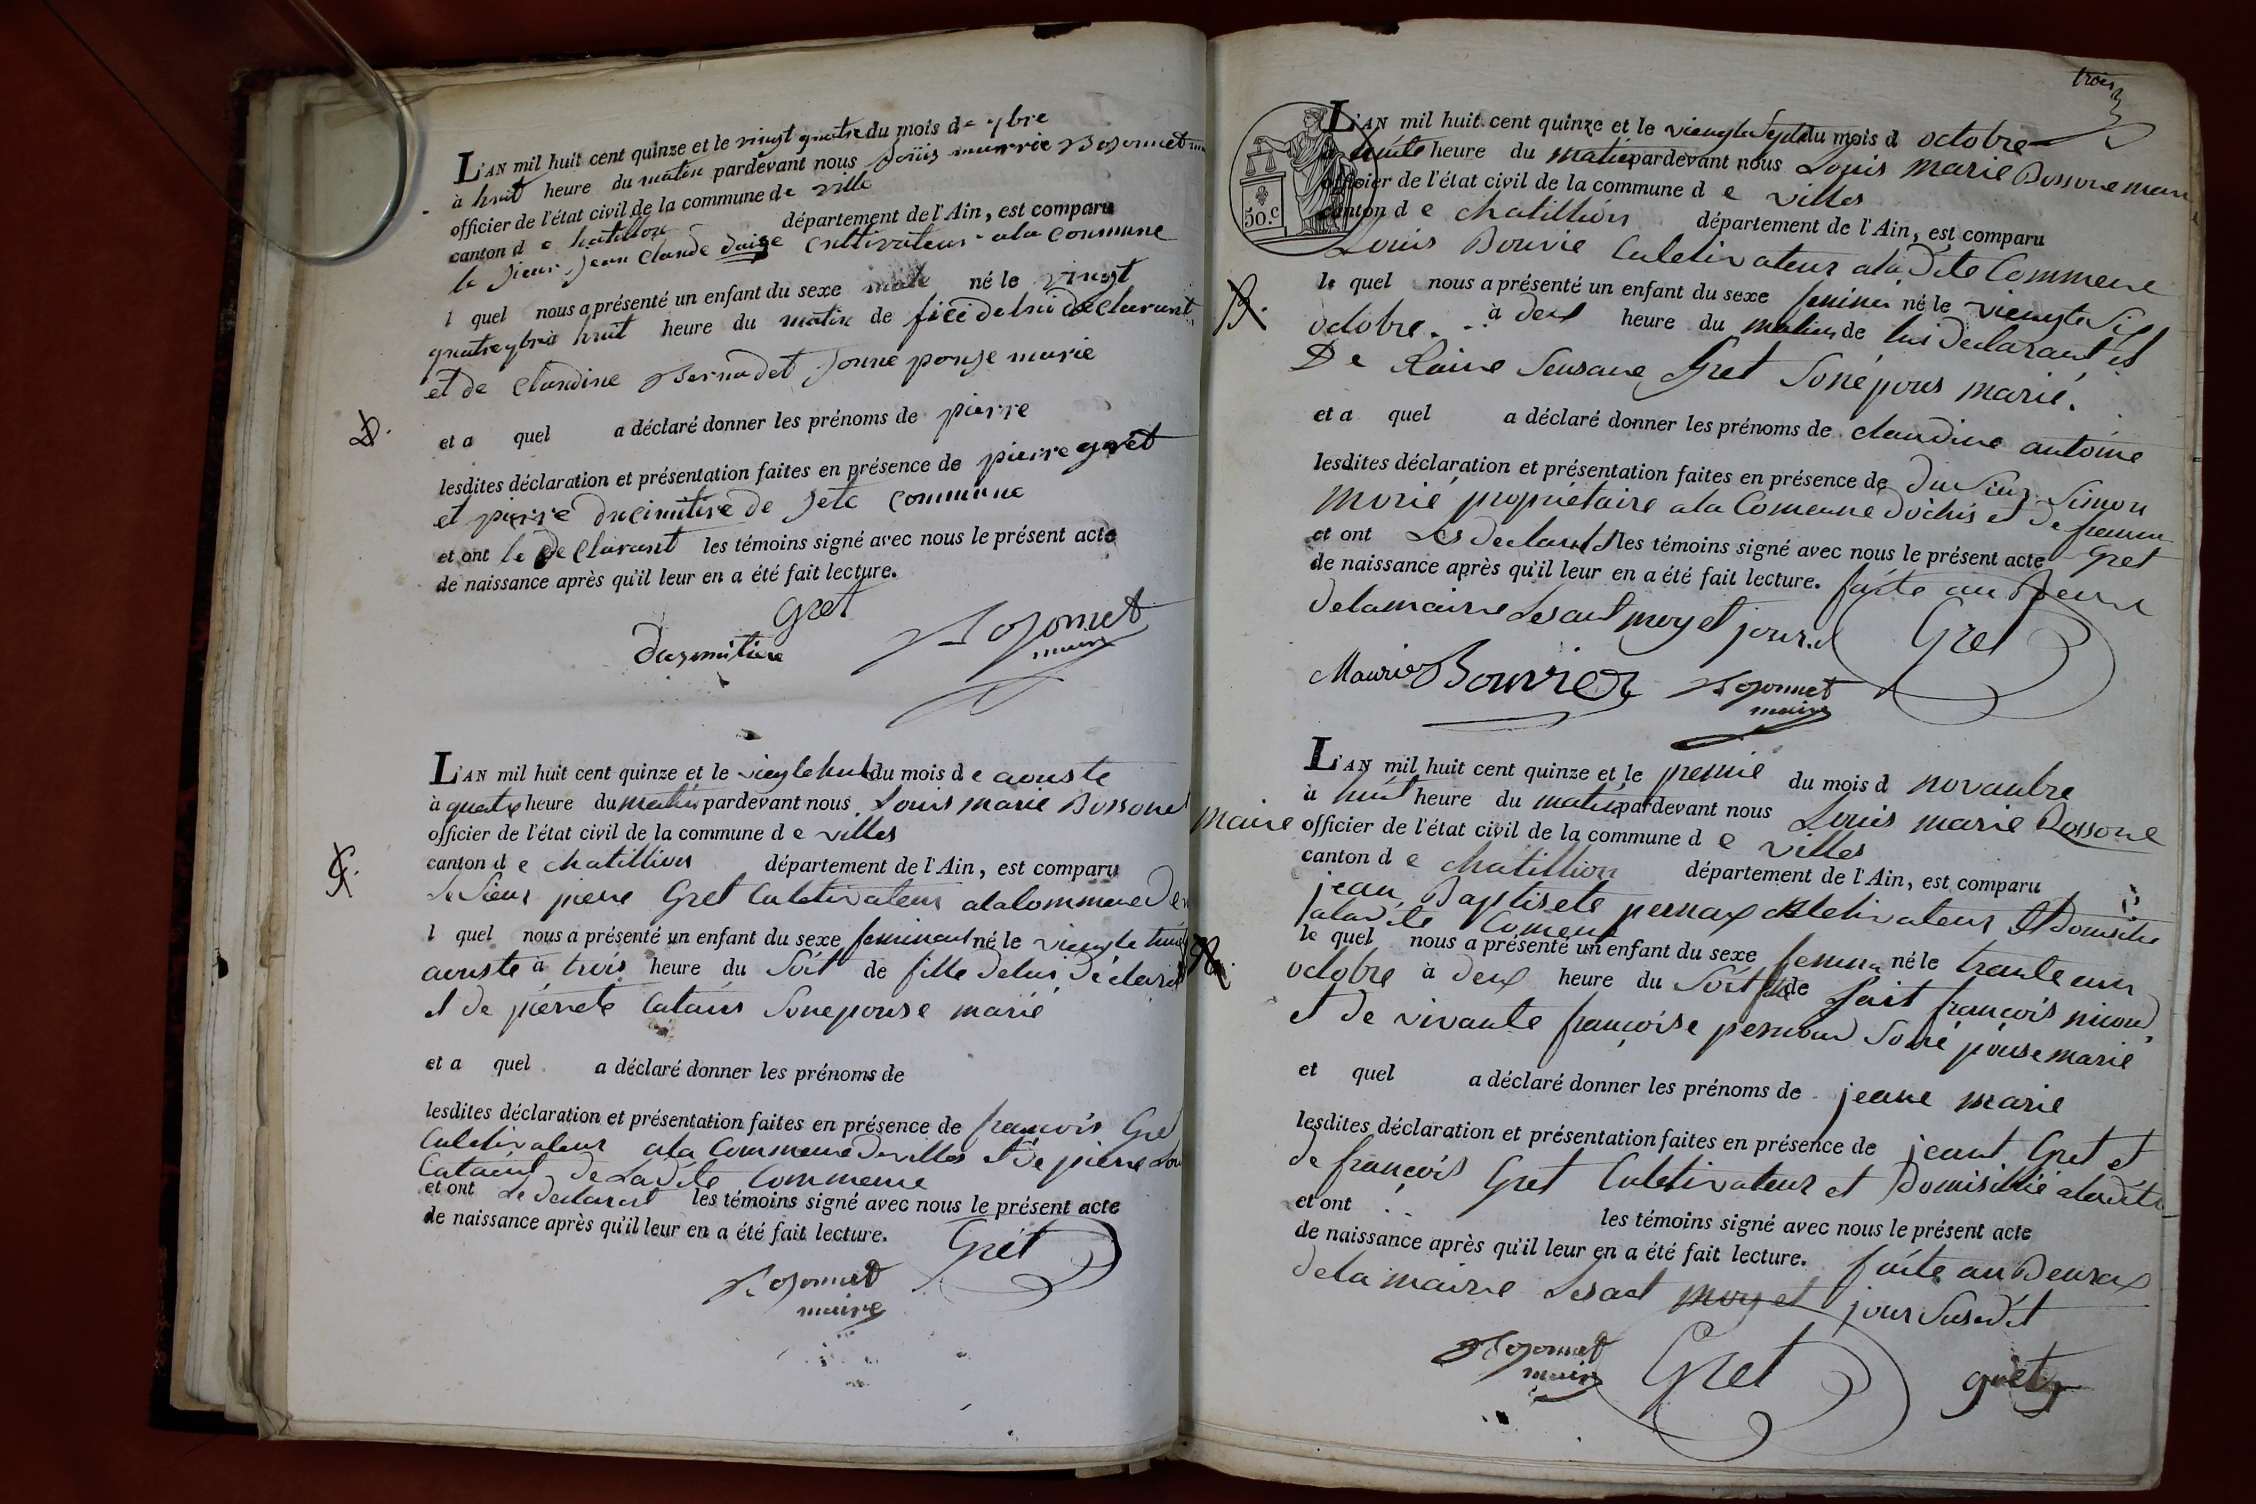 L'AN mil huit cent quinze et le vingt quatre du mois de 7bre
à huit heure du matin pardevant nous Loüis marrie Bosonnet
officier de l'état civil de la commune de ville
canton de hatillon département de l'Ain, est comparu
le sieur jean Claude daize Cultivateur a la commune
l quel nous a présenté un enfant du sexe male né le vingt
quatre 7bre à huit heure du matin de fice de lui de Clarant
et de Claudine Bernadet sonne pouse marie
D.
et a quel a déclaré donner les prénoms de pierre
lesdites déclaration et présentation faites en présence de pierre gret
et pierre ducimitire de sete commune
et ont le de Clarant les témoins signé avec nous le présent acte
de naissance après qu'il leur en a été fait lecture.
gret
Ducimitiere Bosonnet
maire
L'AN mil huit cent quinze et le viengte huit du mois de aouste
à quatre heure du matin pardevant nous Louis marie Bossonet
officier de l'état civil de la commune de villes
canton de chatillion département de l'Ain, est comparu
G.
le sieur pierre Gret Culetivateur a la Commune de
l quel nous a présenté un enfant du sexe feminent né le viengte huit
aouste à trois heure du soit de fille de lui déclarent
et de pierrete Catain sonepouse marié
et a quel a déclaré donner les prénoms de
lesdites déclaration et présentation faites en présence de francois Gret
Culetivateur a la Commune de villes et de pierre
Cataint de La dite Commune
et ont Le declarent les témoins signé avec nous le présent acte
de naissance après qu'il leur en a été fait lecture.
Grét
Bosonnet
maire
trois
L'AN mil huit cent quinze et le viengte sept du mois d octobre
à huite heure du matin pardevant nous Louis marie Bossone maire
officier de l'état civil de la commune de villes
canton de chatillion département de l'Ain, est comparu
50.c
Louis Bouvie Culetivateur a la dite Commune
B.
le quel nous a présenté un enfant du sexe feminin né le viengte six
octobre à deux heure du matin de lui declarant et
De Raine Sensane Gret sonépous marié.
et a quel a déclaré donner les prénoms de claudine antoine
lesdites déclaration et présentation faites en présence de du sieur Simon
Morié propriétaire a la Comeune d'ochis et de
Gret
et ont Les declarant les témoins signé avec nous le présent acte
de naissance après qu'il leur en a été fait lecture. faite au Beureu
de la mairie Lesant moy et jour. Gret
Maurier Bouvier Bosonnet
maire
L'AN mil huit cent quinze et le premié du mois d novanbre
à huit heure du matin pardevant nous Louis marie Bossone
maire officier de l'état civil de la commune de villes
canton de chatillion département de l'Ain, est comparu
jean Baptisete pernax Culetivateur Et Domisilie
a la dite Comeune
le quel nous a présenté un enfant du sexe femenin né le trante un
octobre à deux heure du soit de fait francois nicoud
et de vivante françoise pernoud sone pouse marié
et quel a déclaré donner les prénoms de jeane marie
lesdites déclaration et présentation faites en présence de jeant Gret et
de françois Gret Culetivateur et Domisillié a la dite
et ont les témoins signé avec nous le présent acte
de naissance après qu'il leur en a été fait lecture. faite au Beureux
de la mairie Lesant moy et jour susedit
Bosonnet
maire Gret gret